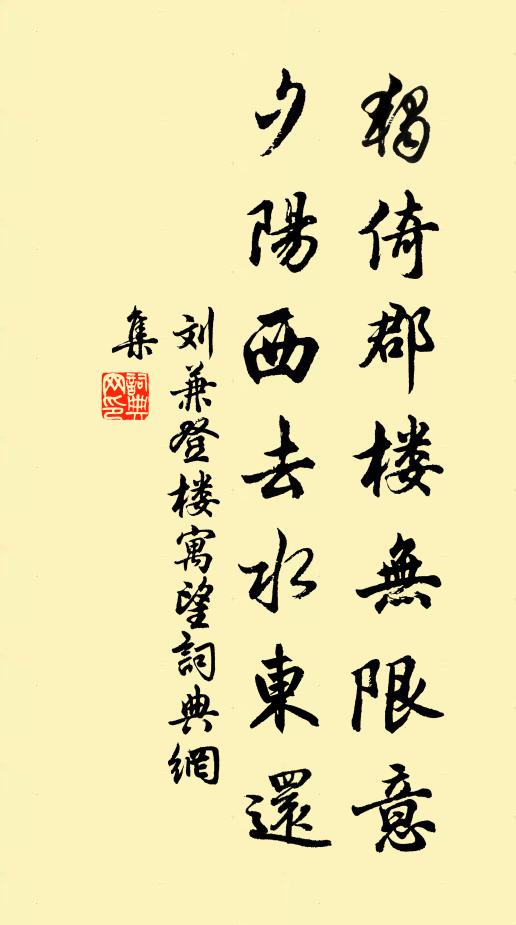 独倚郡楼無限意
夕陽西去水東還
刘兼登楼寓望詞典網
集
詞典
网印